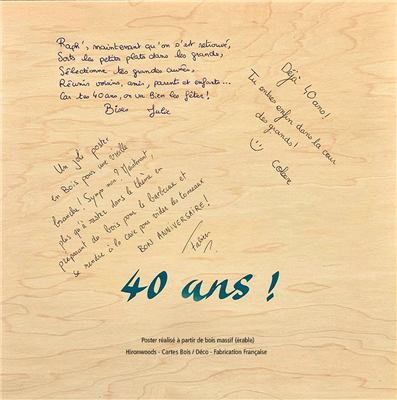 Raph', maintenant qu'on s'est retrouvé,
Sors les petits plats dans les grands,
Sélectionne tes grandes cuvées,
Réunis voisins, amis, parents et enfants...
Car tes 40 ans, on va bien les fêter!
Bises Julie
Déjà 40 ans!
Tu entres enfin dans la cour
des grands!
Un joli poster
en Bois pour une vieille
branche! Sympa non? Maintenant,
plus qu'à rester dans le thème en
préparant du bois pour le barbecue et
se rendre à la cave pour vider les tonneaux
BON ANNIVERSAIRE!
Fabien
40 ans !
Poster réalisé à partir de bois massif (érable)
Hironwoods - Cartes Bois / Déco - Fabrication Française